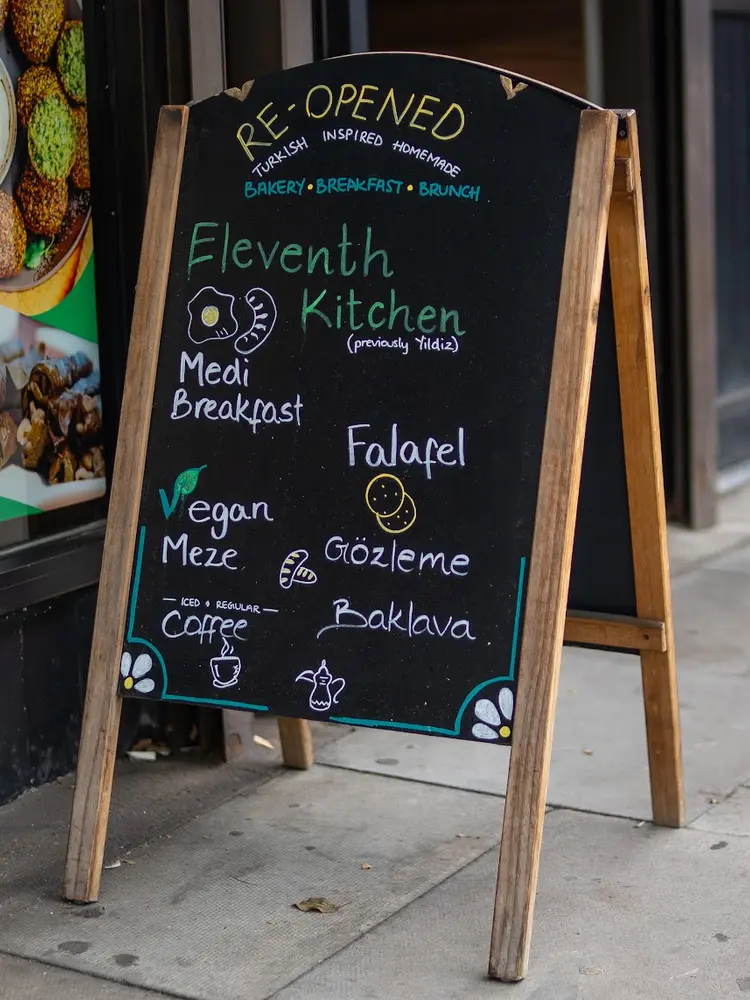 RE-OPENED
TURKISH INSPIRED HOMEMADE
BAKERY • BREAKFAST • BRUNCH
Eleventh
Kitchen
(previously Yildiz)
Medi
Breakfast
Falafel
Vegan
Meze
Gözleme
— ICED & REGULAR —
Coffee
Baklava